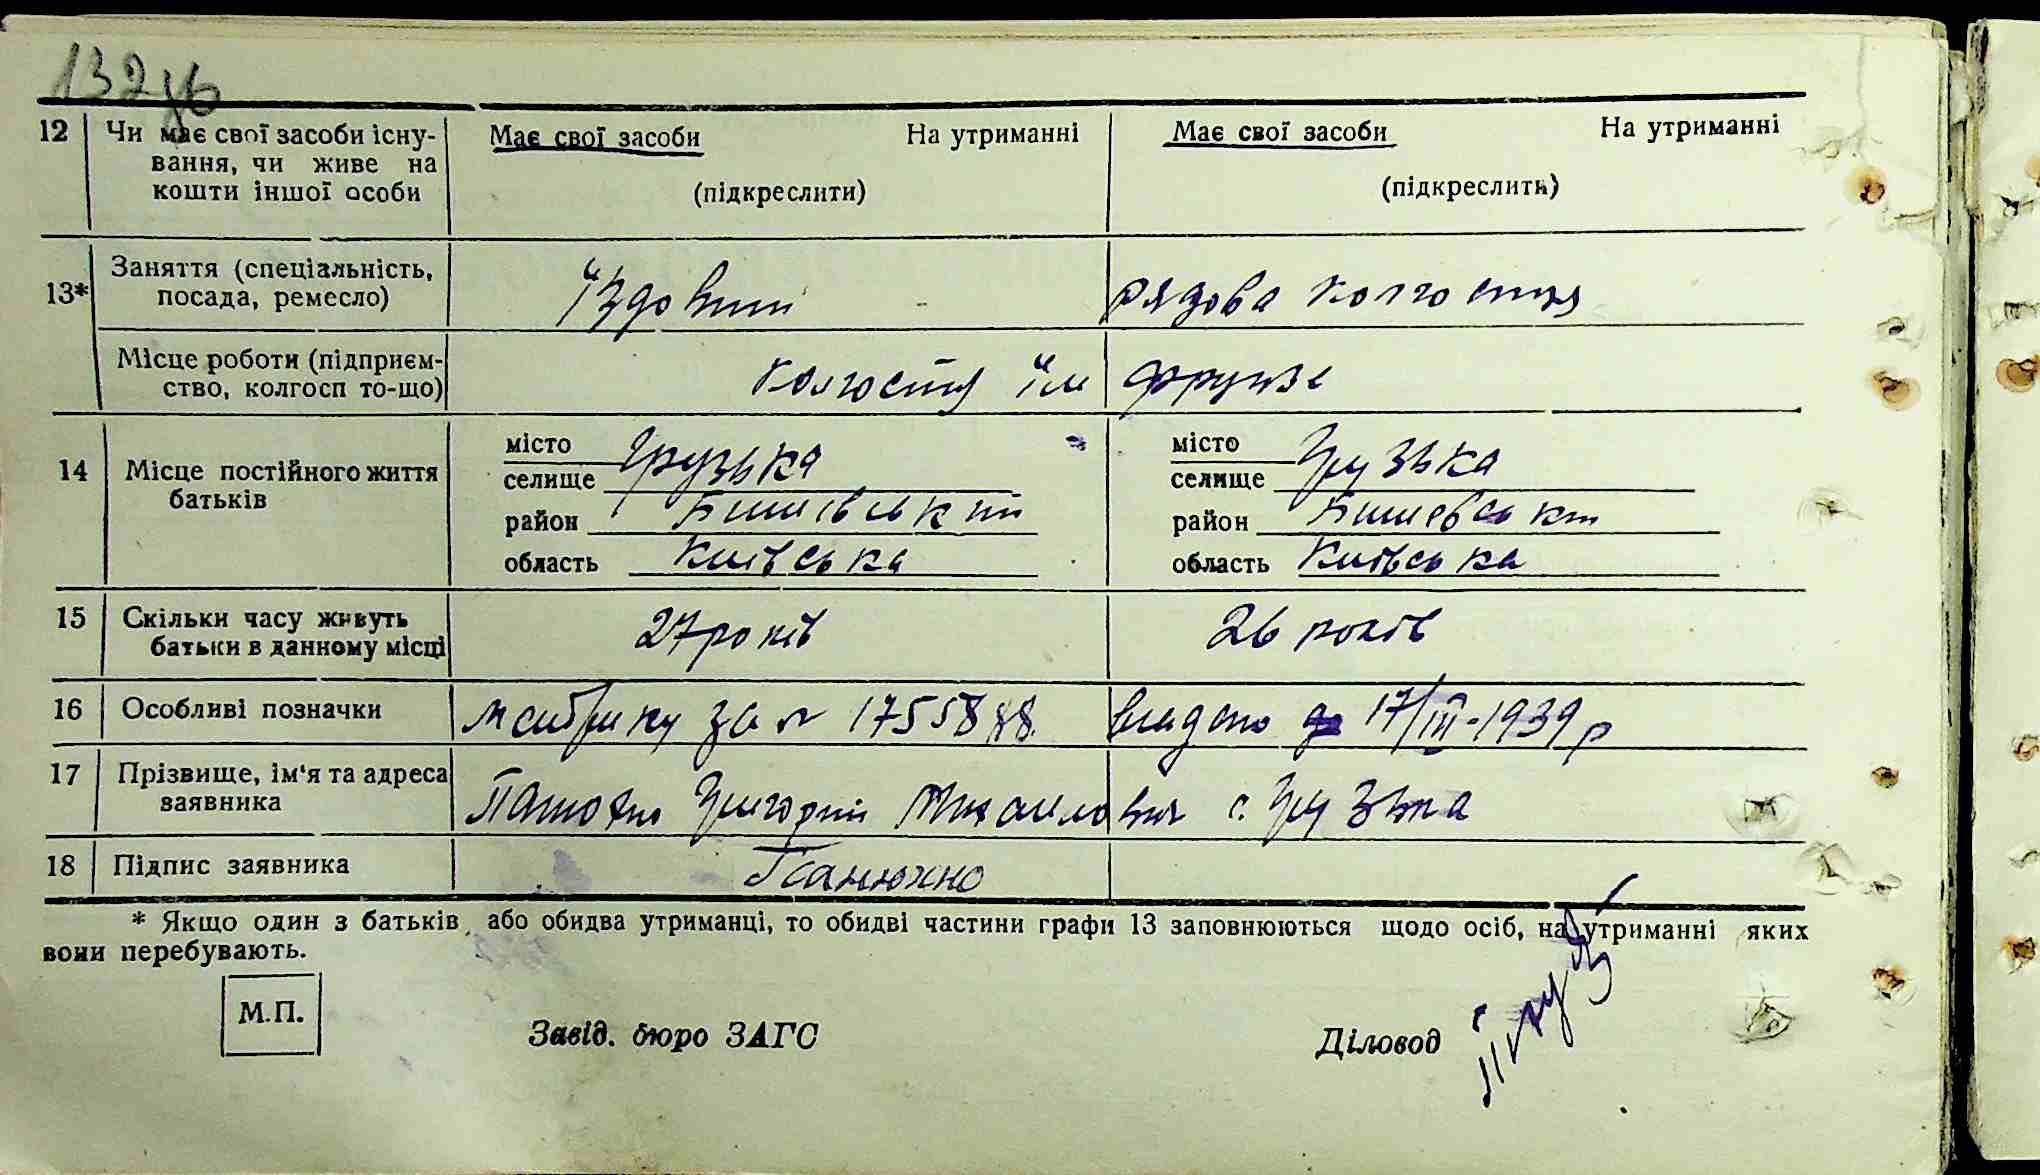 132зв
12 Чи має свої засоби існу- Має свої засоби На утриманні Має свої засоби На утриманні
вання, чи живе на
кошти іншої особи (підкреслити) (підкреслить)
13* Заняття (спеціальність,
посада, ремесло) їздовий рядова колгоспу
Місце роботи (підприєм-
ство, колгосп то-що) Колгоспу ім Фрунзе
14 Місце постійного життя
батьків
місто Грузька місто Грузька
селище селище
район Бишівський район Бишевський
область Київська область Київська
15 Скільки часу живуть
батьки в данному місці 27 років 26 років
16 Особливі позначки метрику за № 175588 видано 17/III-1939 р
17 Прізвище, ім'я та адреса
заявника Григорій Михайлович с. Грузька
18 Підпис заявника Панюхно
* Якщо один з батьків або обидва утриманці, то обидві частини графи 13 заповнюються щодо осіб, на утриманні яких
вони перебувають.
М.П.
Завід. бюро ЗАГС Діловод